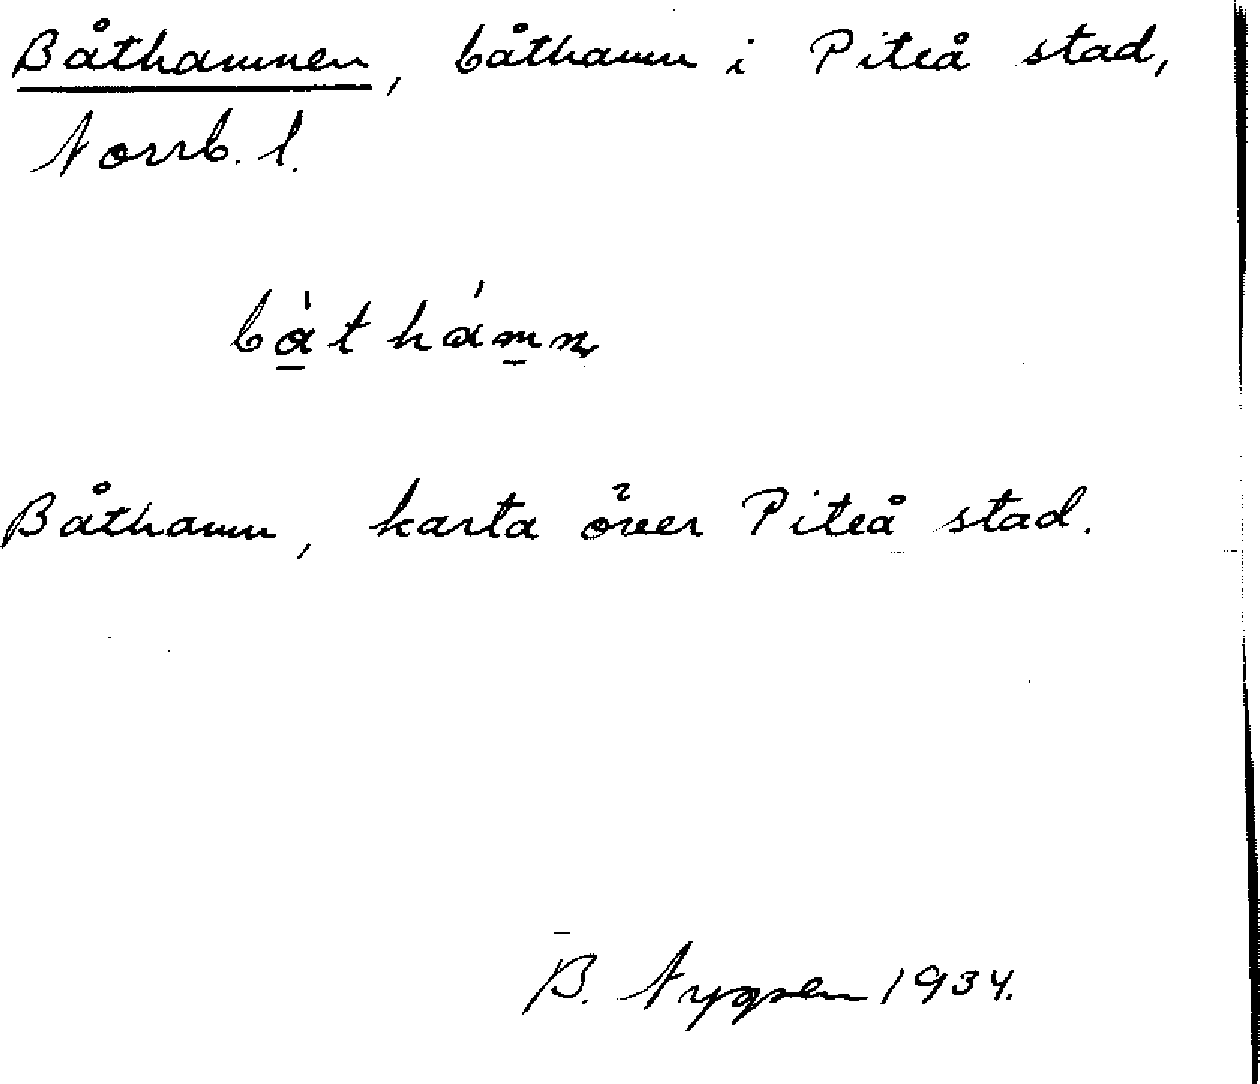 Båthamnen, båthamn i Piteå stad,
Norrb. l.
bàthámn
Båthamn, karta över Piteå stad.
B. Nygren 1934.